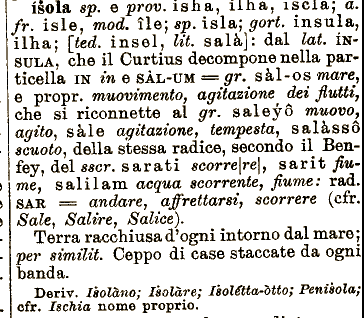 íṡola sp. e prov. isha, ilha, iscla; a.
fr. isle, mod. île; sp. isla; gort. insula,
ilha; [ted. insel, lit. salà]: dal lat. ÍN-
SULA, che il Curtius decompone nella par-
ticella IN in e SÀL-UM = gr. sàl-os mare,
e propr. muovimento, agitazione dei flutti,
che si riconnette al gr. saleyô muovo,
agito, sàle agitazione, tempesta, salàssô
scuoto, della stessa radice, secondo il Ben-
fey, del sscr. sarati scorre|re|, sarit fiu-
me, salilam acqua scorrente, fiume: rad.
SAR = andare, affrettarsi, scorrere (cfr.
Sale, Salire, Salice).
Terra racchiusa d'ogni intorno dal mare;
per similit. Ceppo di case staccate da ogni
banda.
Deriv. Iṡolàno; Iṡolàre; Iṡolétta-òtto; Peniṡola;
cfr. Ischia nome proprio.